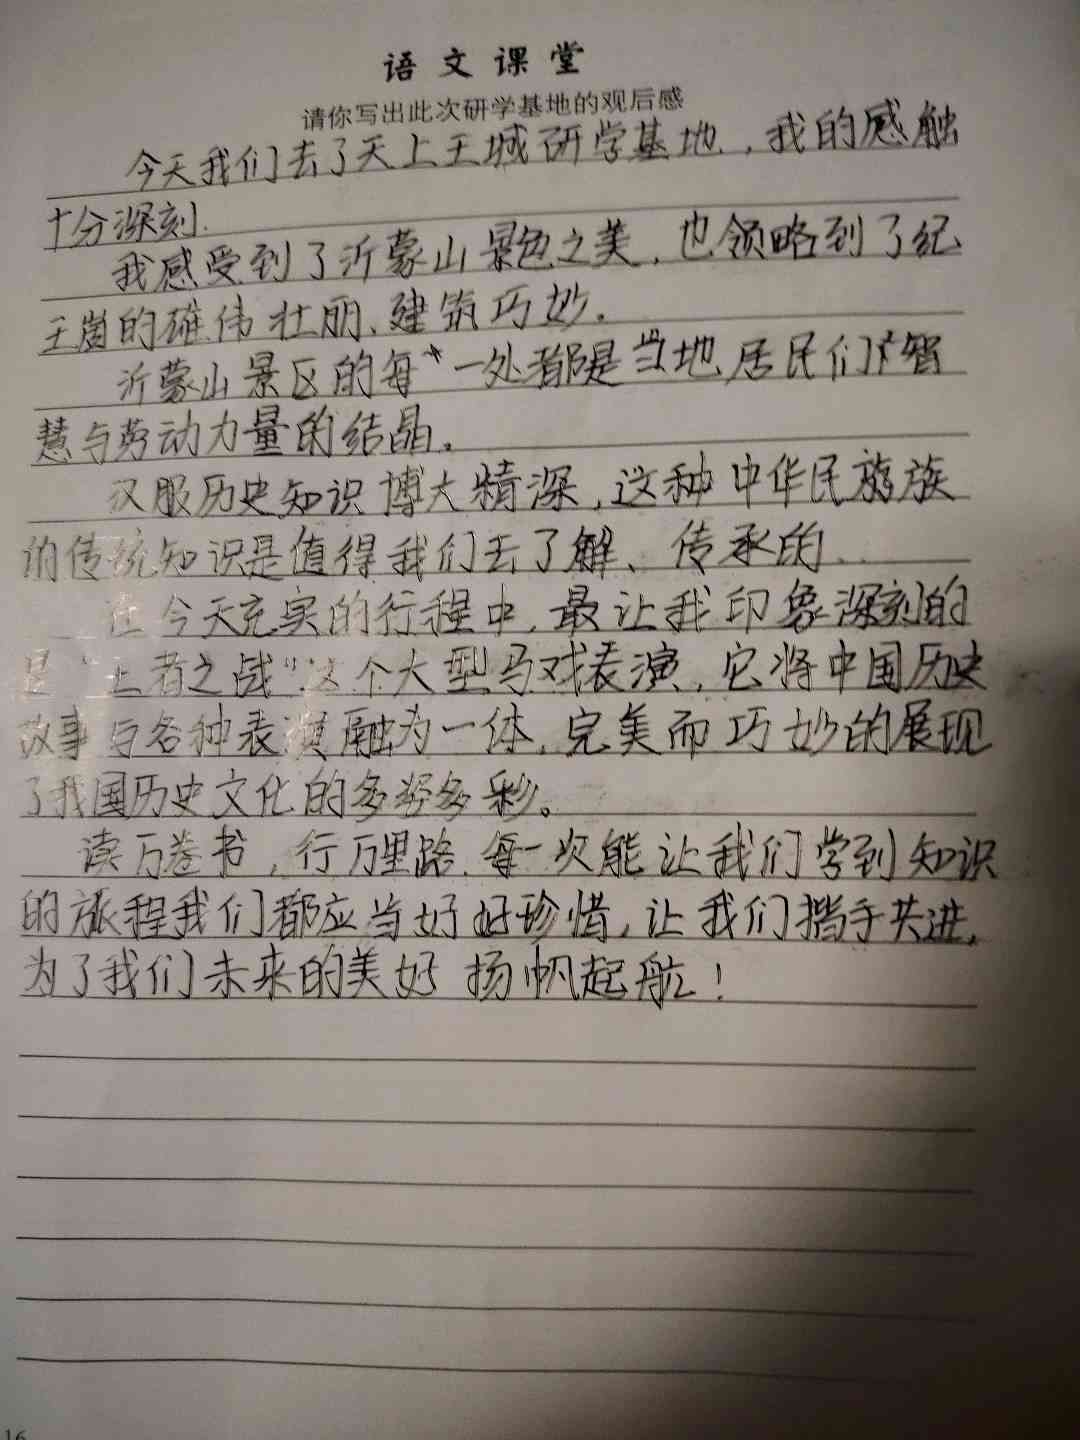 语文课堂
请你写出此次研学基地的观后感
今天我们去了天上王城研学基地，我的感触
十分深刻.
我感受到了沂蒙山景色之美，也领略到了纪
王崮的雄伟壮丽、建筑巧妙。
沂蒙山景区的每一处都是当地居民们智
慧与劳动力量的结晶。
汉服历史知识博大精深，这种中华民族
的传统知识是值得我们去了解、传承的.
在今天充实的行程中，最让我印象深刻的
是"王者之战"这个大型马戏表演，它将中国历史
故事与各种表演融为一体，完美而巧妙的展现
了我国历史文化的多姿多彩。
读万卷书，行万里路.每一次能让我们学到知识
的旅程我们都应当好好珍惜，让我们携手共进，
为了我们未来的美好扬帆起航！
16